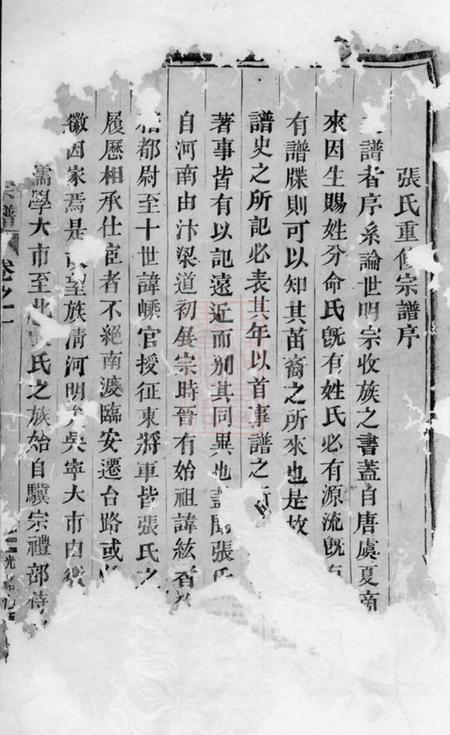 張氏重修宗譜序
譜者序系論世明宗收族之書蓋自唐虞夏商
來因生賜姓分命氏旣有姓氏必有源流旣有
有譜牒則可以知其苗裔之所來也是故
譜史之所記必表其年以首事譜之所
著事皆有以記遠近而别其同異也蓋聞張氏
自河南由汴梁道初展宗時晉有始祖諱紘者
都尉至十世諱嵊官授征東將軍皆張氏之
履歷相承仕宦者不絕南渡臨安遷台路或
徽因家焉是 至族淸河明 吳寧大市由
濡學大市至此 氏之族始自驥宗禮部待
宗譜 卷之一
光緒